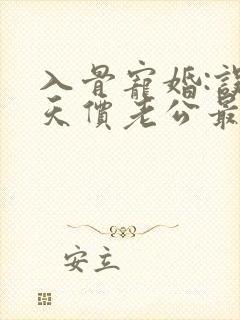 入骨寵婚:誤
天價老公最
安立